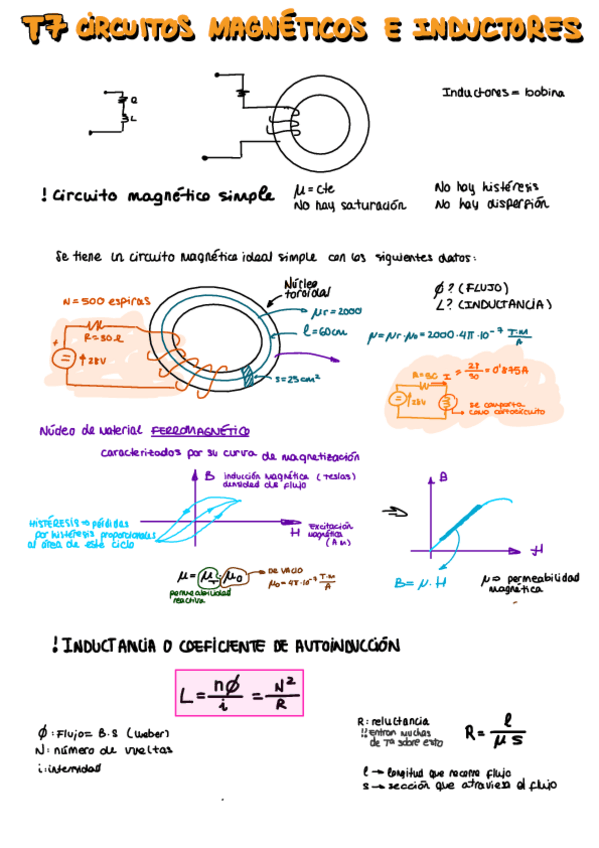 T7 CIRCUITOS MAGNÉTICOS E INDUCTORES
R
L
Inductores = bobina
! Circuito magnético simple
μ = cte
No hay saturación
No hay histéresis
No hay disperpión
Se tiene un circuito magnético ideal simple con los siguientes datos:
N = 500 espiras
R=30Ω
+
↑28V
Núcleo toroidal
μr = 2000
l = 60cm
S = 25cm²
Φ? (FLUJO)
L? (INDUCTANCIA)
μ = μr · μ0 = 2000 · 4π · 10⁻⁷ T·m/A
R=30
I = 28/30 = 0'875A
↑28V
se comporta como cortocircuito
Núcleo de material FERROMAGNÉTICO
Caracterizados por su curva de magnetización
B inducción magnética (Teslas)
densidad de flujo
HISTÉRESIS → pérdidas
por histéresis proporcionales
al área de este ciclo
H Excitación magnética (A m)
B
H
B = μ · H
μ → permeabilidad magnética
μ = μr · μ0
DE VACIO
μ0 = 4π·10⁻⁷ T·m/A
permeabilidad reactiva
! INDUCTANCIA O COEFICIENTE DE AUTOINDUCCIÓN
L = nΦ/i = N²/R
Φ: Flujo = B·S (Weber)
N: número de vueltas
i: intensidad
R: reluctancia
!! Entran muchas
de Tª sobre esto
R = l/μS
l → longitud que recorre flujo
S → sección que atraviesa el flujo